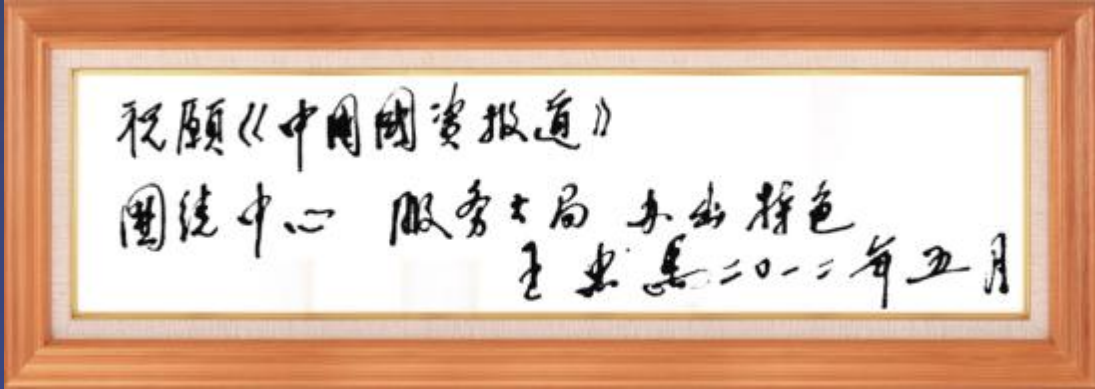 祝願《中國國资报道》
圍绕中心 服务大局 办出特色
王忠禹二〇一二年五月